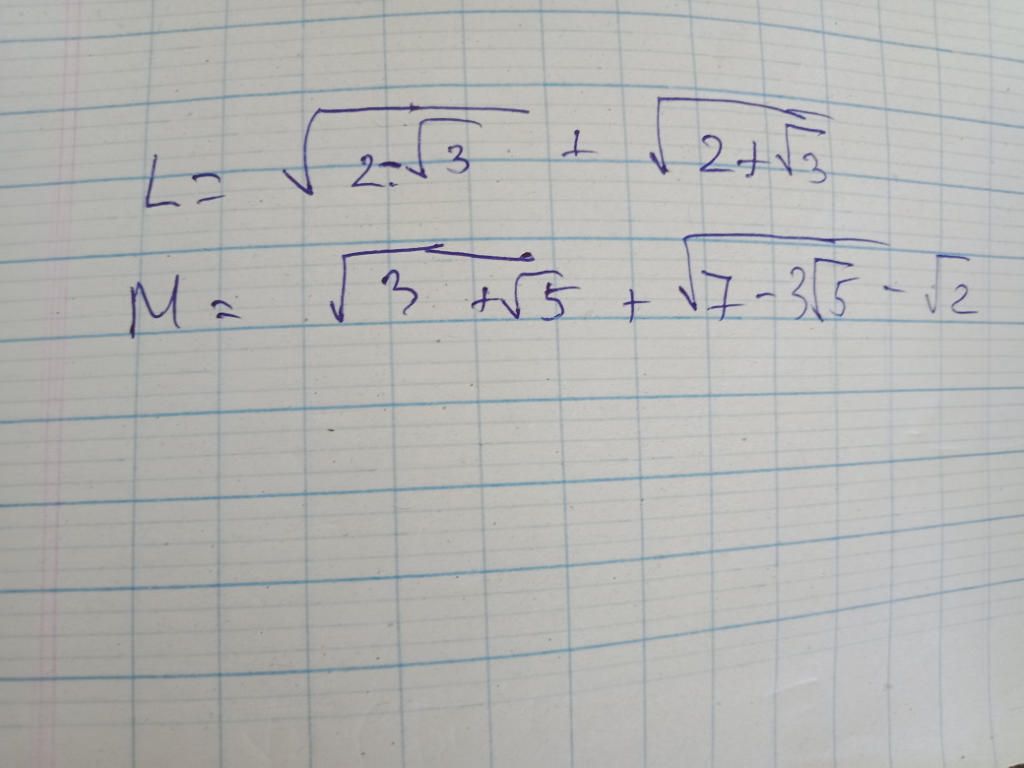 L = √(2-√3) + √(2+√3)
M = √(3 + √5) + √(7 - 3√5) - √2